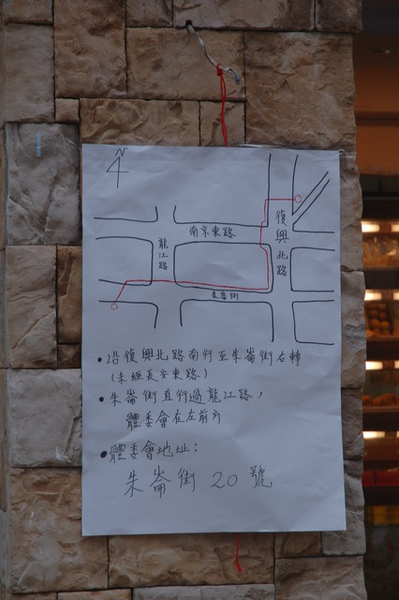 N
南京東路
復興北路
龍江路
朱崙街
•沿復興北路南行至朱崙街右轉
(未經長安東路)
•朱崙街直行過龍江路，
體委會在左前方
•體委會地址：
朱崙街 20 號